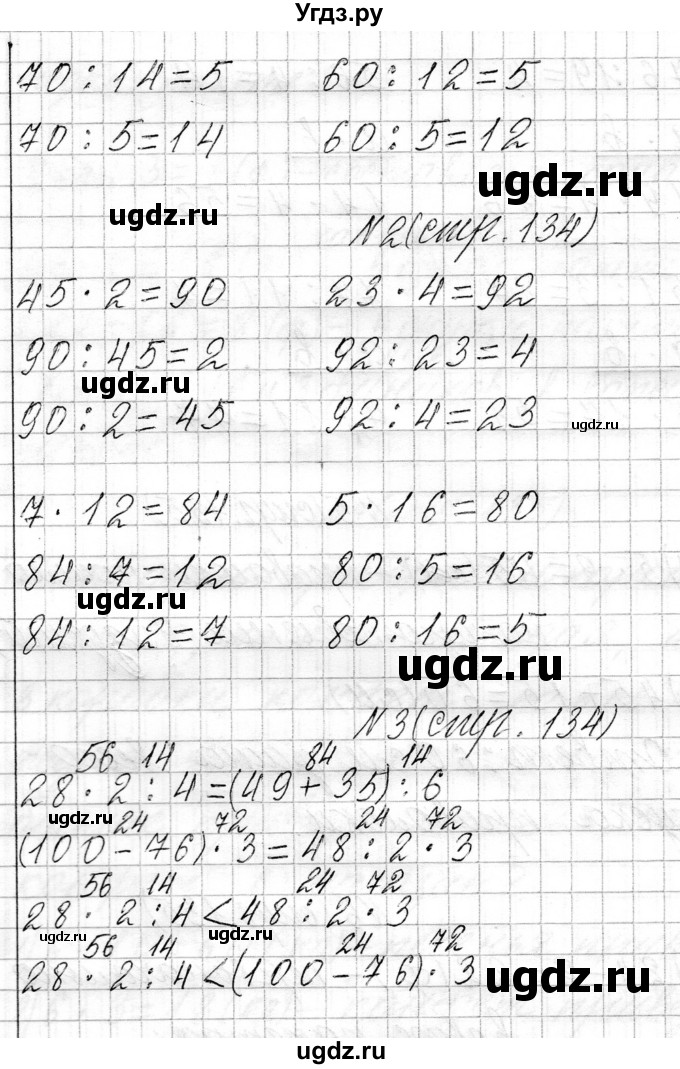 Угдз.ру
70 : 14 = 5 60 : 12 = 5
70 : 5 = 14 60 : 5 = 12
ugdz.ru
ugdz.ru
№2 (стр. 134)
45 · 2 = 90 23 · 4 = 92
90 : 45 = 2 92 : 23 = 4
ugdz.ru
90 : 2 = 45 92 : 4 = 23
ugdz.ru
7 · 12 = 84 5 · 16 = 80
84 : 7 = 12 80 : 5 = 16
ugdz.ru
84 : 12 = 7 80 : 16 = 5
ugdz.ru
№3 (стр. 134)
56 14 84 14
28 · 2 : 4 = (49 + 35) : 6
ugdz.ru
24 72 24 72
(100 - 76) · 3 = 48 : 2 · 3
56 14 24 72
28 · 2 : 4 < 48 : 2 · 3
ugdz.ru ugdz.ru
56 14 24 72
28 · 2 : 4 < (100 - 76) · 3
ugdz.ru
ugdz.ru